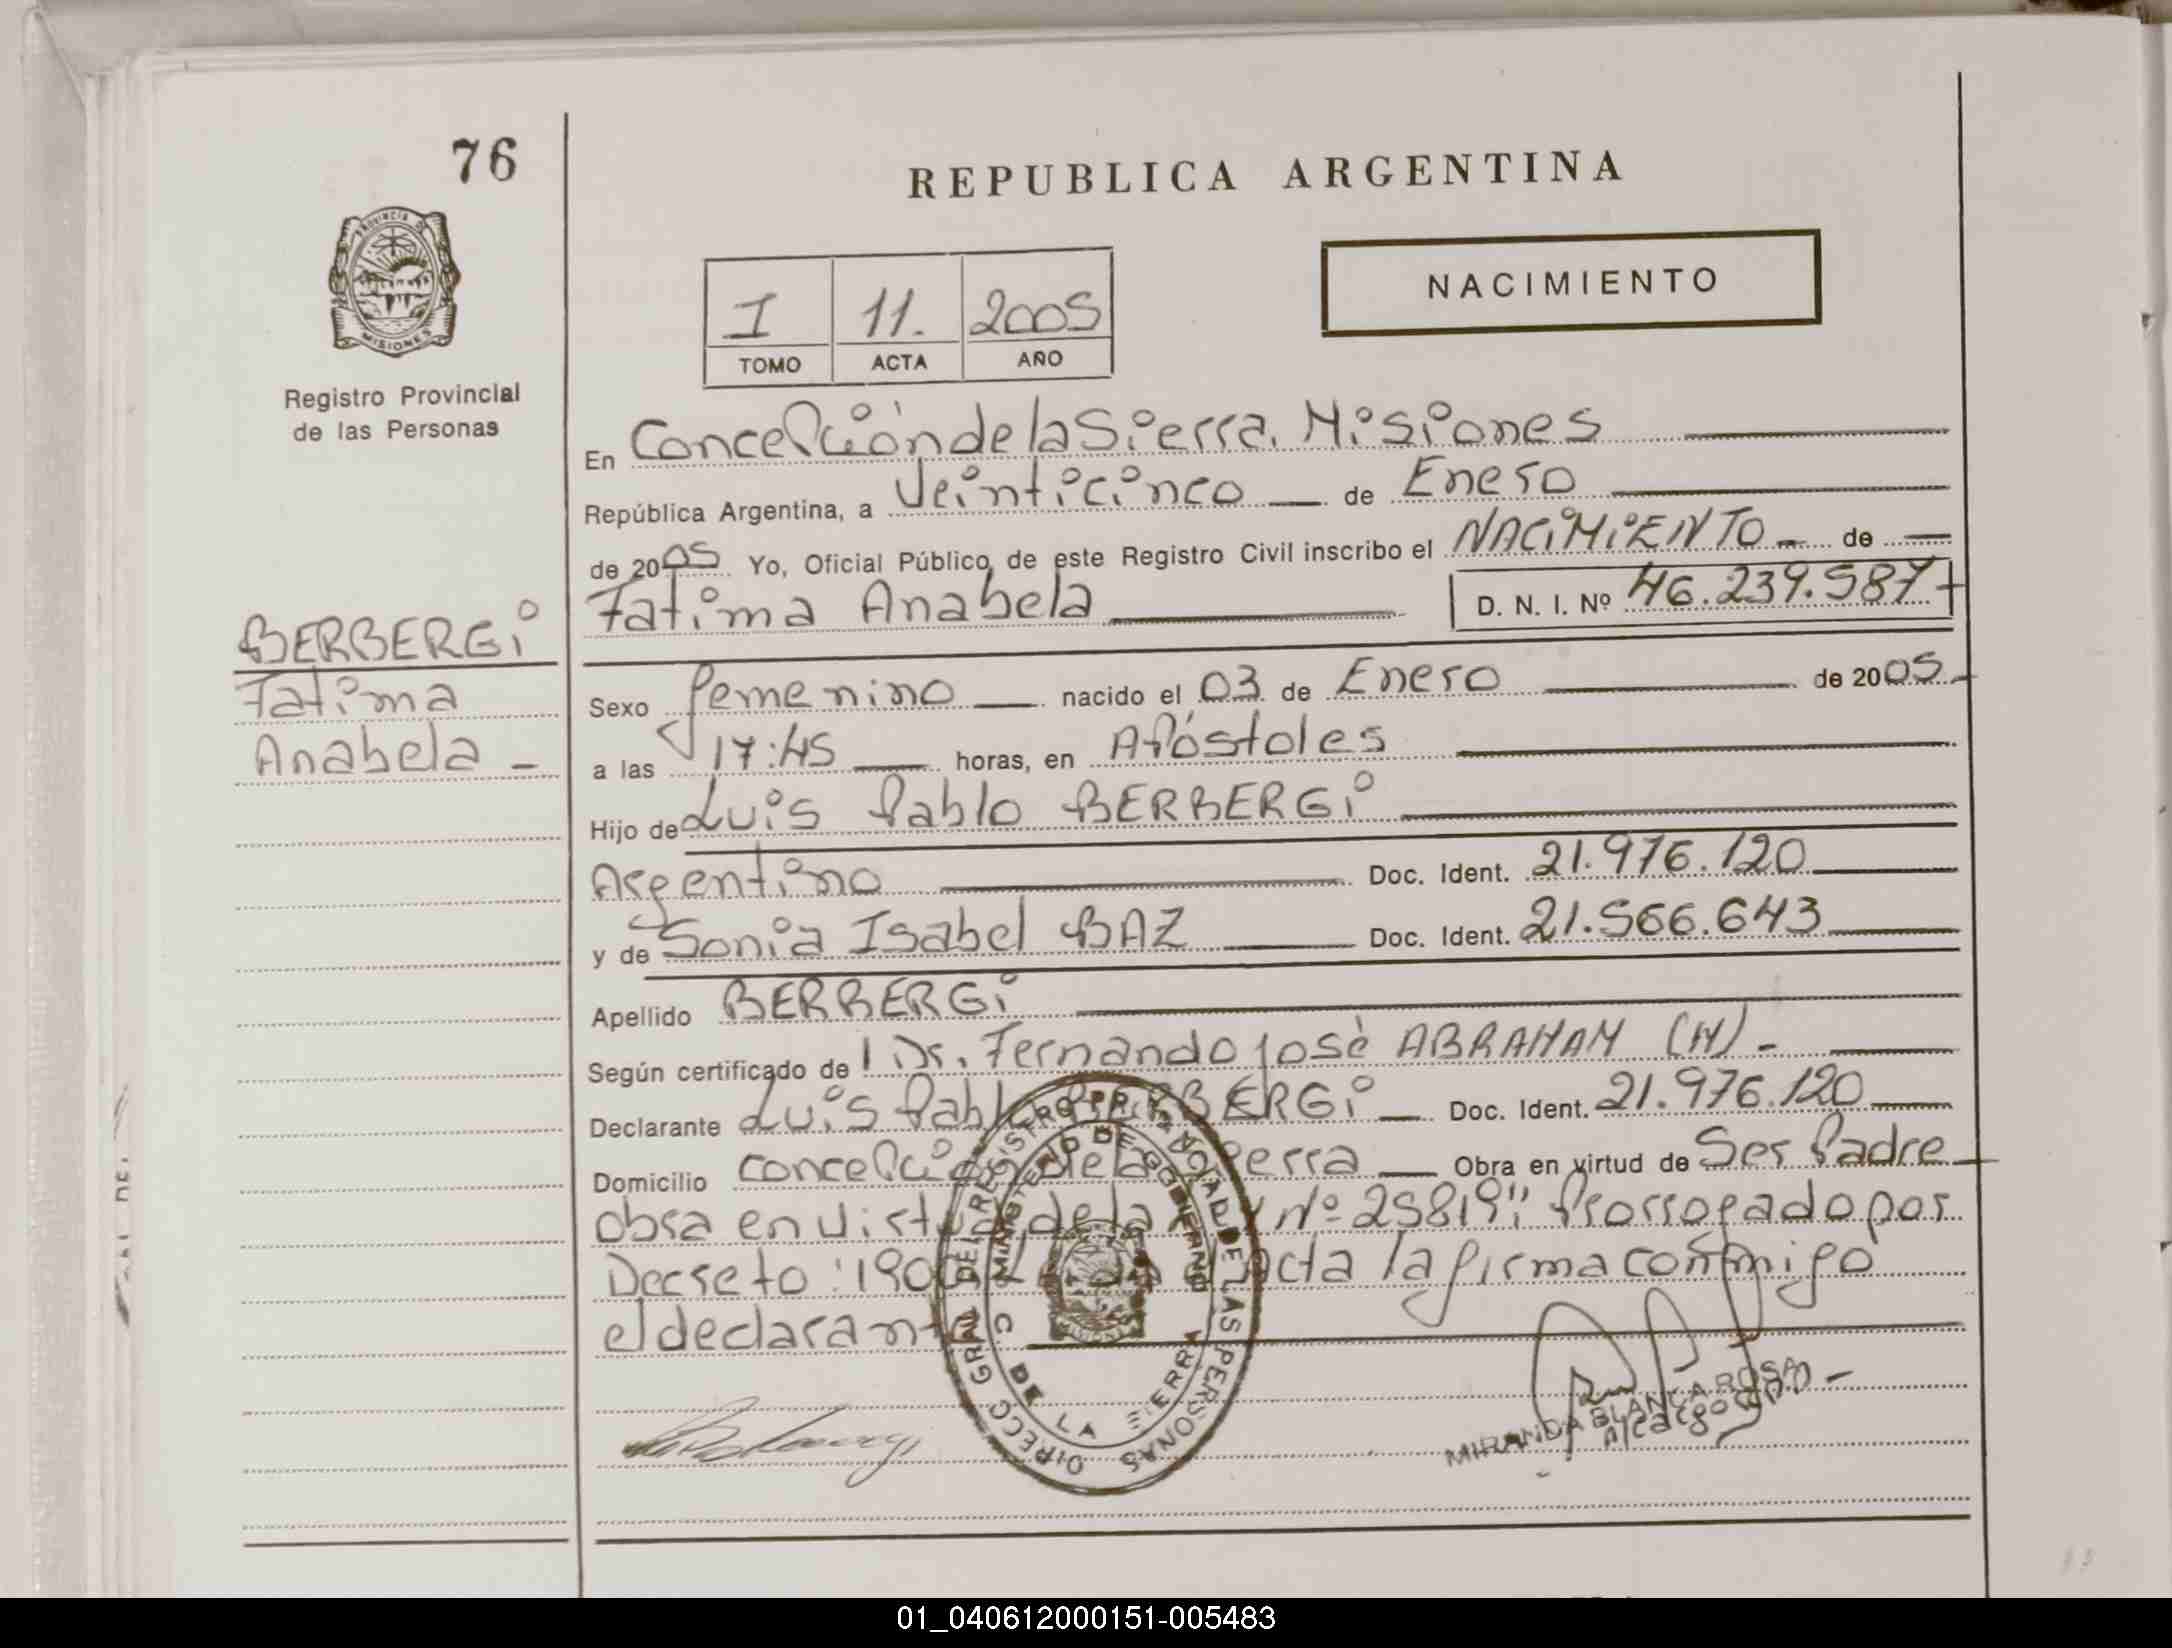 76
REPUBLICA ARGENTINA
PROVINCIA DE
MISIONES
Registro Provincial
de las Personas
I 11. 2005
TOMO ACTA AÑO
NACIMIENTO
En Concepción de la Sierra. Misiones
República Argentina, a Veinticinco de Enero
de 2005 Yo, Oficial Público, de este Registro Civil inscribo el NACIMIENTO de
Fatima Anabela D. N. I. Nº 46.239.587
BERBERGi
Fatima
Anabela
Sexo femenino nacido el 03 de Enero de 2005
a las 17:45 horas, en Apóstoles
Hijo de Luis Pablo BERBERGi
Argentino Doc. Ident. 21.976.120
y de Sonia Isabel BAZ Doc. Ident. 21.566.643
Apellido BERBERGi
Según certificado de Dr. Fernando José ABRAHAM (H)
Declarante Luis Pablo BERBERGi Doc. Ident. 21.976.120
Domicilio Concepción de la Sierra Obra en virtud de Ser Padre
obra en virtud de la nº 25819" Prorrogado por
Decreto: acta la firma conmigo
el declarante
DIRECC GRAL DEL REGISTRO PROVINCIAL DE LAS PERSONAS
MINISTERIO DE GOBIERNO
C DE LA SIERRA
MIRANDA BLANCA ROSA
A/cargo
01_040612000151-005483